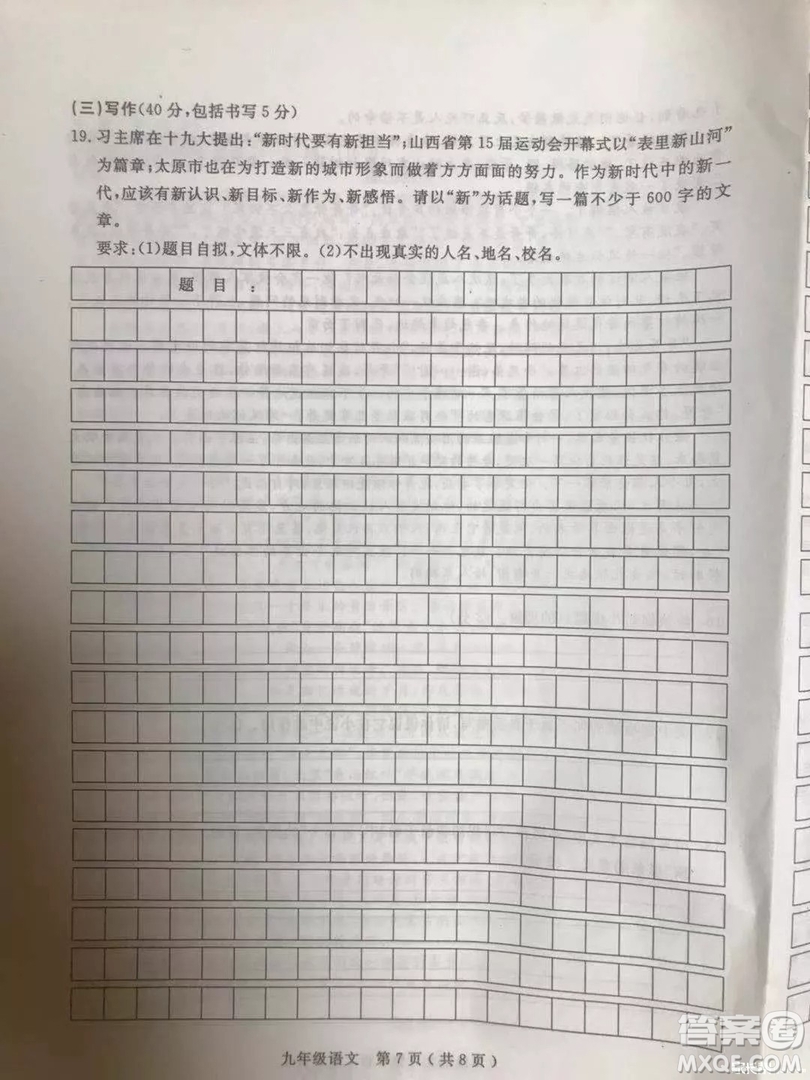 (三)写作(40分,包括书写5分)
19.习主席在十九大提出:“新时代要有新担当”;山西省第15届运动会开幕式以“表里新山河”
为篇章;太原市也在为打造新的城市形象而做着方方面面的努力。作为新时代中的新一
代,应该有新认识、新目标、新作为、新感悟。请以“新”为话题,写一篇不少于600字的文
章。
要求:(1)题目自拟,文体不限。(2)不出现真实的人名、地名、校名。
题目:
九年级语文 第7页(共8页)
答案圈
MXQE.COM